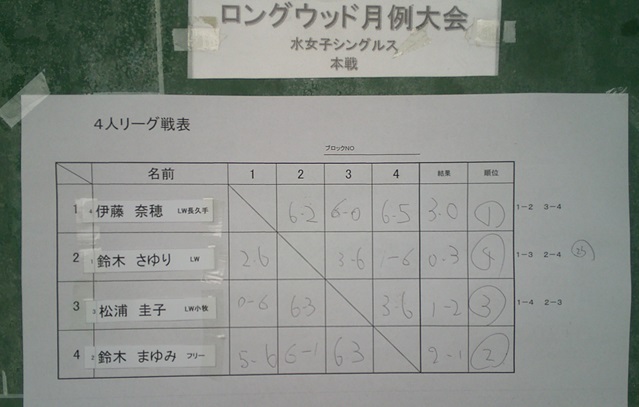 ロングウッド月例大会
水女子シングルス
本戦
4人リーグ戦表
ブロックNO
名前 1 2 3 4 結果 順位
1 4 伊藤 奈穂 LW長久手 6-2 6-0 6-5 3-0 1 1-2 3-4
2 1 鈴木 さゆり LW 2-6 3-6 1-6 0-3 4 1-3 2-4
3 3 松浦 圭子 LW小牧 0-6 6-3 3-6 1-2 3 1-4 2-3
4 2 鈴木 まゆみ フリー 5-6 6-1 6-3 2-1 2